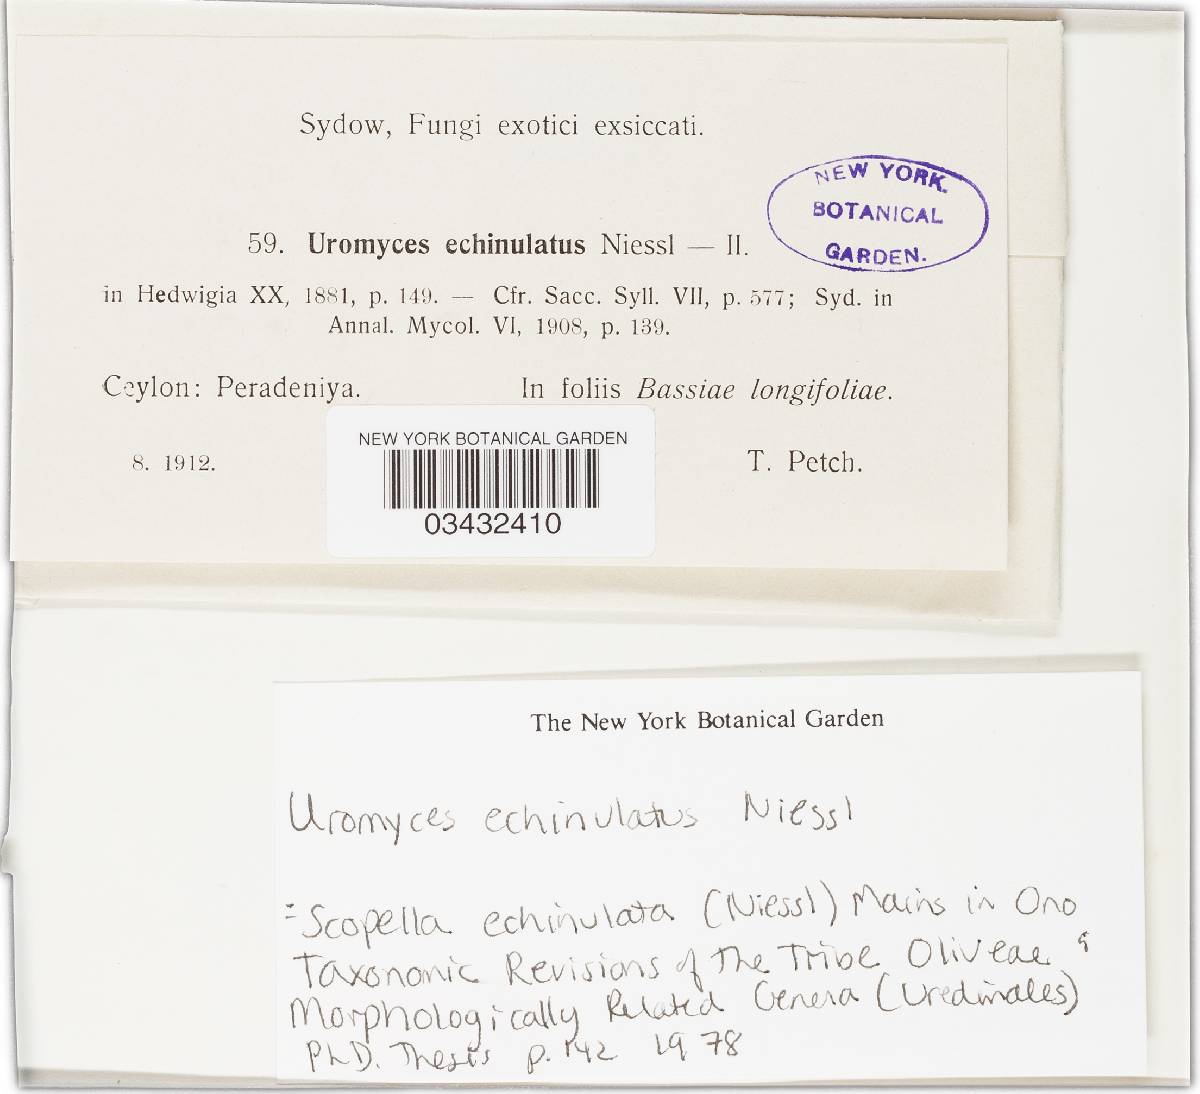 Sydow, Fungi exotici exsiccati.
NEW YORK.
BOTANICAL
GARDEN.
59. Uromyces echinulatus Niessl — II.
in Hedwigia XX, 1881, p. 149. — Cfr. Sacc. Syll. VII, p. 577; Syd. in
Annal. Mycol. VI, 1908, p. 139.
Ceylon: Peradeniya. In foliis Bassiae longifoliae.
8. 1912. T. Petch.
NEW YORK BOTANICAL GARDEN
03432410
The New York Botanical Garden
Uromyces echinulatus Niessl
= Scopella echinulata (Niessl) Mains in Ono
Taxonomic Revisions of the Tribe Oliveae &
Morphologically Related Genera (Uredinales)
PhD. Thesis p. 142 1978